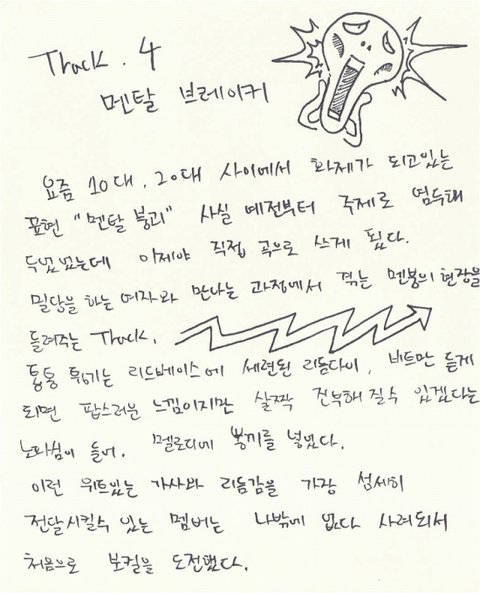 Track. 4
멘탈 브레이커
요즘 10대, 20대 사이에서 화제가 되고있는
표현 "멘탈 붕괴" 사실 예전부터 주제로 염두해
두었었는데 이제야 직접 곡으로 쓰게 됬다.
밀당을 하는 여자와 만나는 과정에서 겪는 멘붕의 현장을
들려주는 Track.
통통 튀기는 리드베이스에 세련된 리듬다이, 비트만 듣게
되면 팝스러운 느낌이지만 살짝 진부해 질수 있겠다는
노파심이 들어. 멜로디에 뽕끼를 넣었다.
이런 위트있는 가사와 리듬감을 가장 섬세히
전달시킬수 있는 멤버는 나밖에 없다 사려되서
처음으로 보컬을 도전했다.